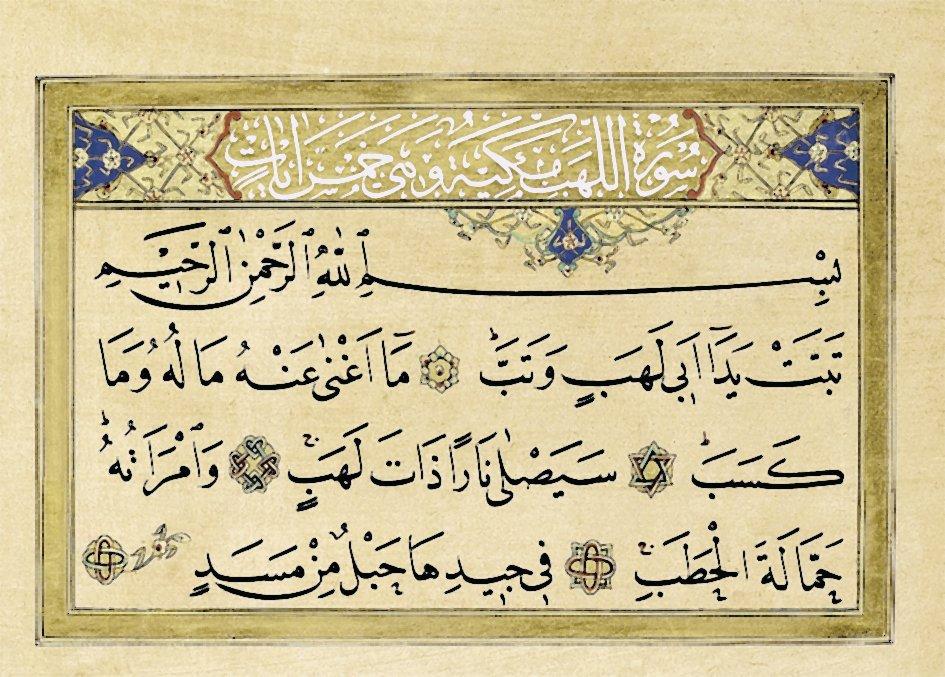 سُورَةُ اللَّهَبِ مَكِّيَّةٌ وَهِيَ خَمْسُ اٰيَاتٍ
بِسْمِ اللّٰهِ الرَّحْمٰنِ الرَّحِيمِ
تَبَّتْ يَدَٓا اَبِي لَهَبٍ وَتَبَّ مَٓا اَغْنٰى عَنْهُ مَالُهُ وَمَا
كَسَبَ سَيَصْلٰى نَارًا ذَاتَ لَهَبٍ وَامْرَاَتُهُ
حَمَّالَةَ الْحَطَبِ فِي جِيدِهَا حَبْلٌ مِنْ مَسَدٍ